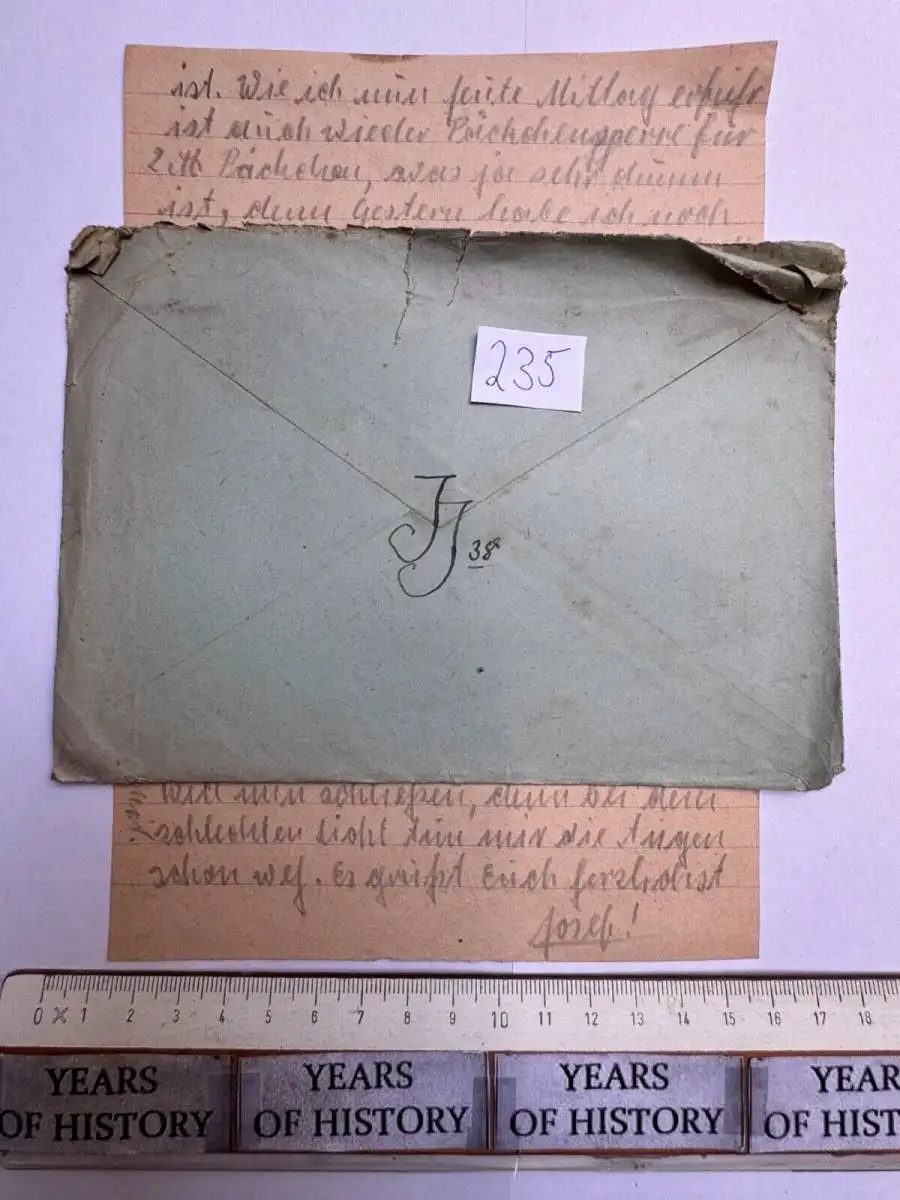 ist. Wie ich nun heute Mittag erfuhr
ist auch wieder Päckchensperre für
2 ℔ Päckchen, was ja sehr dumm
ist, denn Gestern habe ich noch
235
JJ 38
will nun schließen, denn bei dem
schlechten Licht tun mir die Augen
schon weh. Es grüßt Euch herzlichst
Josef!
0 1 2 3 4 5 6 7 8 9 10 11 12 13 14 15 16 17 18
YEARS OF HISTORY
YEARS OF HISTORY
YEARS OF HISTORY
YEAR OF HIST